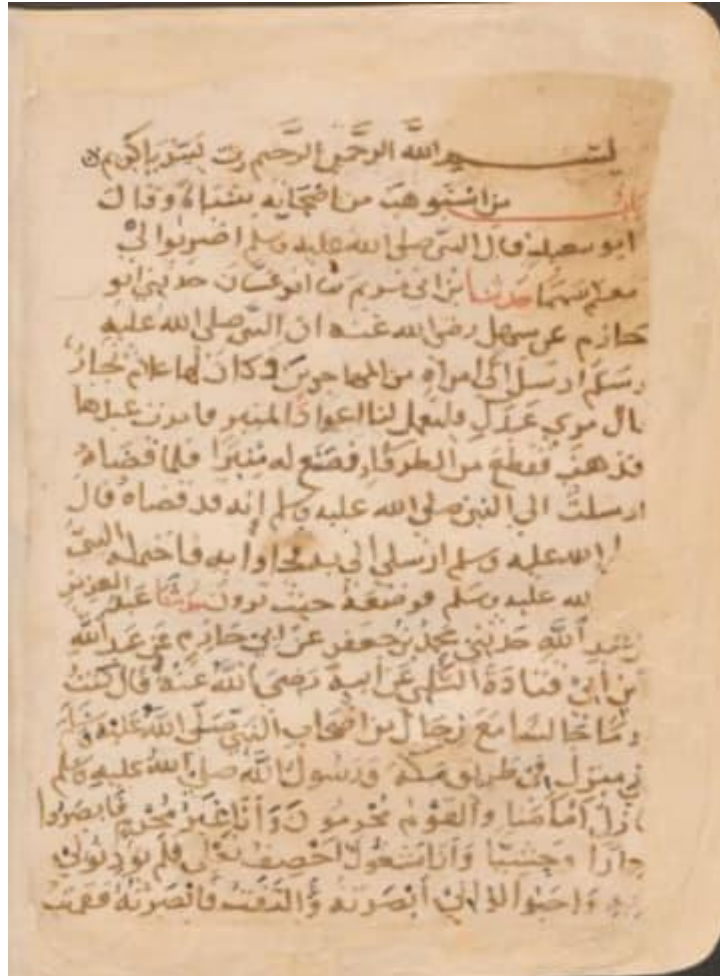 بسم الله الرحمن الرحيم رب يسر يا كريم
باب من استوهب من اصحابه شيئا وقال
ابو سعيد قال النبي صلى الله عليه وسلم اضربوا لي
معكم سهما حدثنا بن ابي مريم ثنا ابو غسان حدثني ابو
حازم عن سهل رضي الله عنه ان النبي صلى الله عليه
وسلم ارسل الى امراة من المهاجرين وكان لها غلام نجار
قال مري عبدك فليعمل لنا اعواد المنبر فامرت عبدها
فذهب فقطع من الطرفاء فصنع له منبرا فلما قضاه
ارسلت الى النبي صلى الله عليه وسلم انه قد قضاه قال
الله عليه وسلم ارسلي الي به فجاوا به فاحتمله النبي
الله عليه وسلم فوضعه حيث ترون حدثنا عبد العزيز
بن عبد الله حدثني محمد بن جعفر عن ابي حازم عن عبد الله
بن ابي قتادة السلمي عن ابيه رضي الله عنه قال كنت
يوما جالسا مع رجال من اصحاب النبي صلى الله عليه وسلم
في منزل في طريق مكة ورسول الله صلى الله عليه وسلم
نازل امامنا والقوم محرمون وانا غير محرم فابصروا
حمارا وحشيا وانا مشغول اخصف نعلي فلم يؤذنوني
به واحبوا لو اني ابصرته والتفت فابصرته فقمت